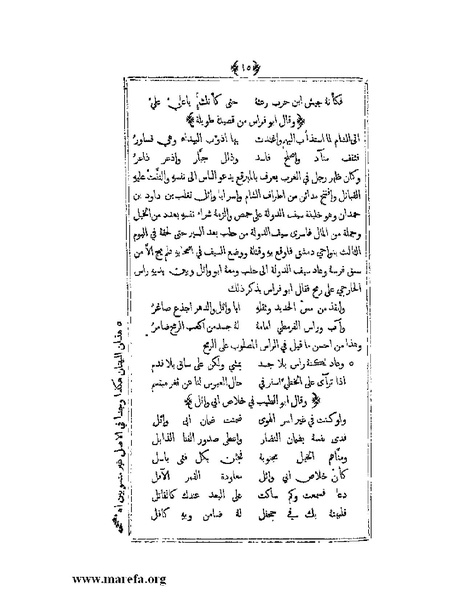 ﴿١٥﴾
فكأنه جيش ابن حرب رعته حتى كأنك يا علي علي
﴿ وقال ابو فراس من قصيدة طويلة ﴾
الى الشام لما استذأب اليهم واغتدت بها اذؤب البيداء وهي قساور
فثقف منآد واصلح فاسد وذلل جبار واذعر ذاعر
وكان ظهر رجل في العرب يعرف بالمبرقع يدعو الناس الى نفسه والتفت عليه
القبائل وافتتح مدائن من اطراف الشام واسر ابا وائل تغلب بن داود بن
حمدان وهو خليفة سيف الدولة على حمص والزمه شراء نفسه بعدد من الخيل
وجملة من المال فاسرى سيف الدولة من حلب يغذ السير حتى لحقه في اليوم
الثالث بنواحي دمشق فاوقع به وقتله ووضع السيف في اصحابه فلم ينج الا من
سبق فرسه وعاد سيف الدولة الى حلب ومعه ابو وائل وبين يديه راس
الخارجي على رمح فقال ابو فراس يذكر ذلك
وانقذ من مس الحديد وثقله ابا وائل والدهر اجدع صاغر
وآب وراس القرمطي امامه له جسد من اكعب الرمح ضامر
وهذا من احسن ما قيل في الراس المصلوب على الرمح
٥ وعاد لكنه راس بلا جسد يمشي ولكن على ساق بلا قدم
اذا تراآى على الخطي اسفر في حال العبوس لنا عن ثغر مبتسم
﴿ وقال ابو الطيب في خلاص ابي وائل ﴾
ولو كنت في غير اسر الهوى ضمنت ضمان ابي وائل
فدى نفسه بضمان النضار واعطى صدور القنا الذابل
ومناهم الخيل مجنوبة فجئن بكل فتى باسل
كأن خلاص ابي وائل معاودة القمر الآفل
دعا فسمعت وكم ساكت على البعد عندك كالقائل
فلبيته بك في جحفل له ضامن وبه كافل
٥ هذان البيتان هكذا وجدا في الاصل غير منسوبين اه مصححه
www.marefa.org